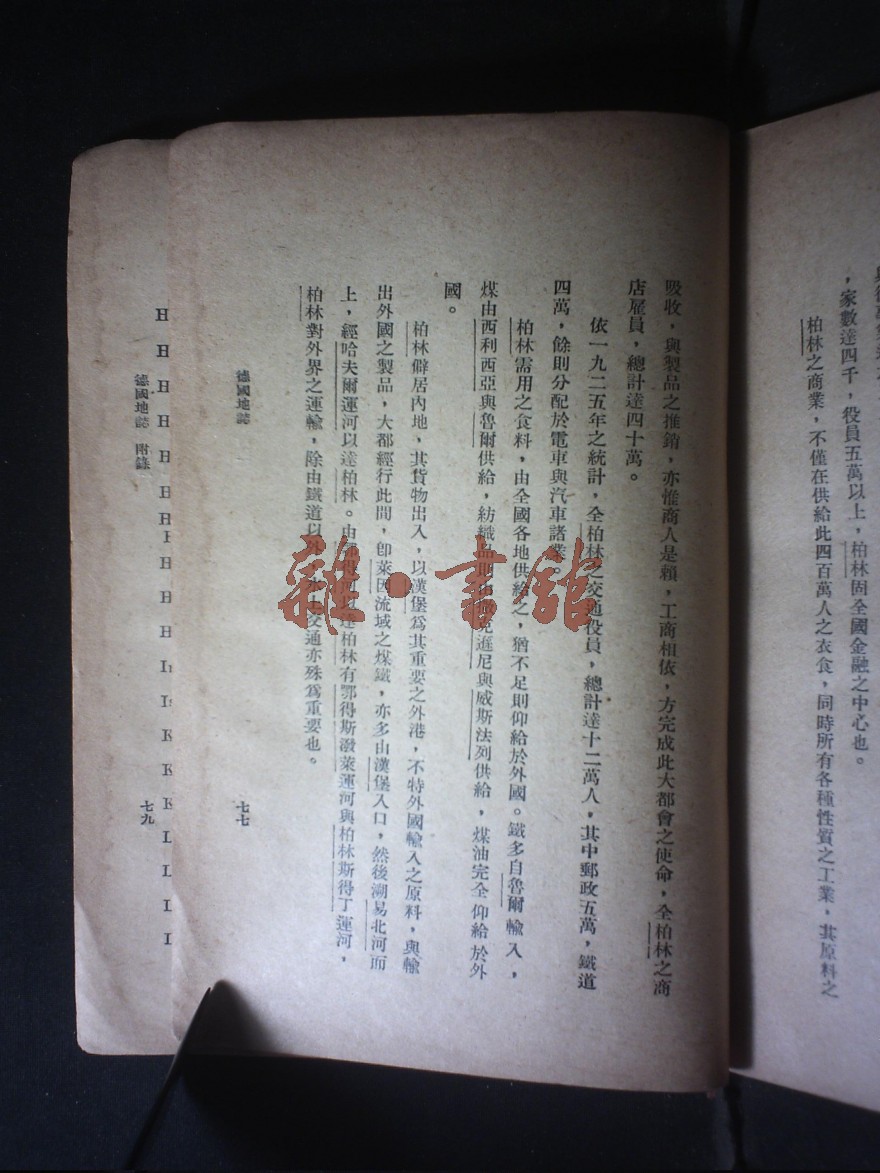 ，家數達四千，役員五萬以上，柏林固全國金融之中心也。
柏林之商業，不僅在供給此四百萬人之衣食，同時所有各種性質之工業，其原料之
吸收，與製品之推銷，亦惟商人是賴，工商相依，方完成此大都會之使命，全柏林之商
店雇員，總計達四十萬。
依一九二五年之統計，全柏林之交通役員，總計達十二萬人，其中郵政五萬，鐵道
四萬，餘則分配於電車與汽車諸業。
柏林需用之食料，由全國各地供給之，猶不足則仰給於外國。鐵多自魯爾輸入，
煤由西利西亞與魯爾供給，紡織品則由 遜尼與威斯法列供給，煤油完全仰給於外
國。
柏林僻居內地，其貨物出入，以漢堡為其重要之外港，不特外國輸入之原料，與輸
出外國之製品，大都經行此間，卽萊因流域之煤鐵，亦多由漢堡入口，然後溯易北河而
上，經哈夫爾運河以達柏林。由 柏林有鄂得斯潑萊運河與柏林斯得丁運河，
柏林對外界之運輸，除由鐵道以外，水上交通亦殊為重要也。
德國地誌
七七
H
H
H
H
H
H
H
H
H
K
K
K
L
L
I
I
德國地誌 附錄
七九
雜·書館